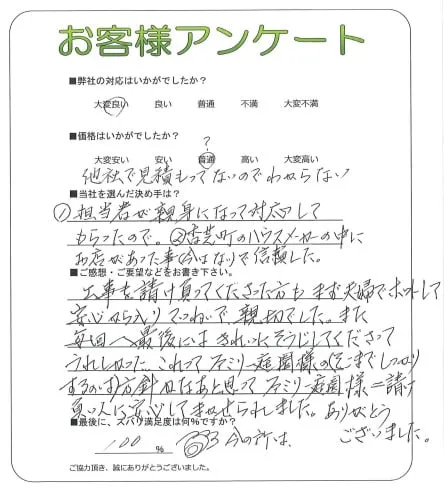 お客様アンケート
■弊社の対応はいかがでしたか？
大変良い 良い 普通 不満 大変不満
■価格はいかがでしたか？
？
大変安い 安い 普通 高い 大変高い
他社で見積もってないのでわからない
■当社を選んだ決め手は？
①担当者が親身になって対応して
もらったので。②香芝町のハウスメーカーの中に
お店があった事(今はなし)で信頼した。
■ご感想・ご要望などをお書き下さい。
工事を請け負ってくださった方も まず夫婦で
安心 親切でした。また
毎回 最後には きれいにそうじしてくださって
うれしかった これってファミリー庭園様の(そこまでしっかり
するのは)方針 なあと思って ファミリー庭園様＝請け
負い人に安心してまかせられました。ありがとう
■最後に、ズバリ満足度は何％ですか？
ございました。
100 ％ 今の所は、
ご協力頂き、誠にありがとうございました。